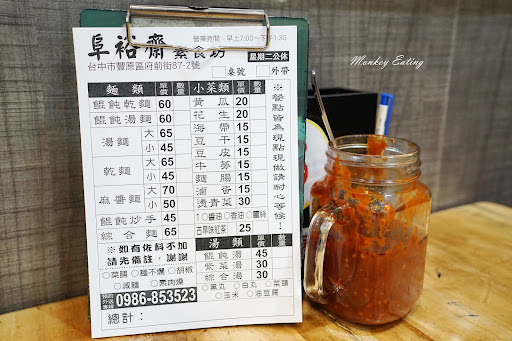 阜裕齋素食坊
營業時間：早上7:00～下午1:30
星期二公休
台中市豐原區府前街87-2號
□桌號 □外帶
麵類 單價 數量
餛飩乾麵 60
餛飩湯麵 60
湯麵 大 65
小 45
乾麵 大 65
小 45
麻醬麵 大 70
小 50
餛飩炒手 45
綜合麵 65
※如有佐料不加
請先備註，謝謝
○菜脯 ○麵不爛 ○胡椒
○減麵 ○素肉燥
0986-853523
總計：
小菜類 單價 數量
黃瓜 20
花生 20
海帶 15
豆干 15
豆皮 15
牛蒡 15
麵腸 15
滷香 15
燙青菜 30
○醬油 ○香油 ○薑絲
古早味紅茶 25
湯類 單價 數量
餛飩湯 45
紫菜湯 30
綜合湯 30
○黑丸 ○白丸 ○菜頭
○玉米 ○油豆腐
※餐點皆為現點現做請耐心等候！
Monkey Eating